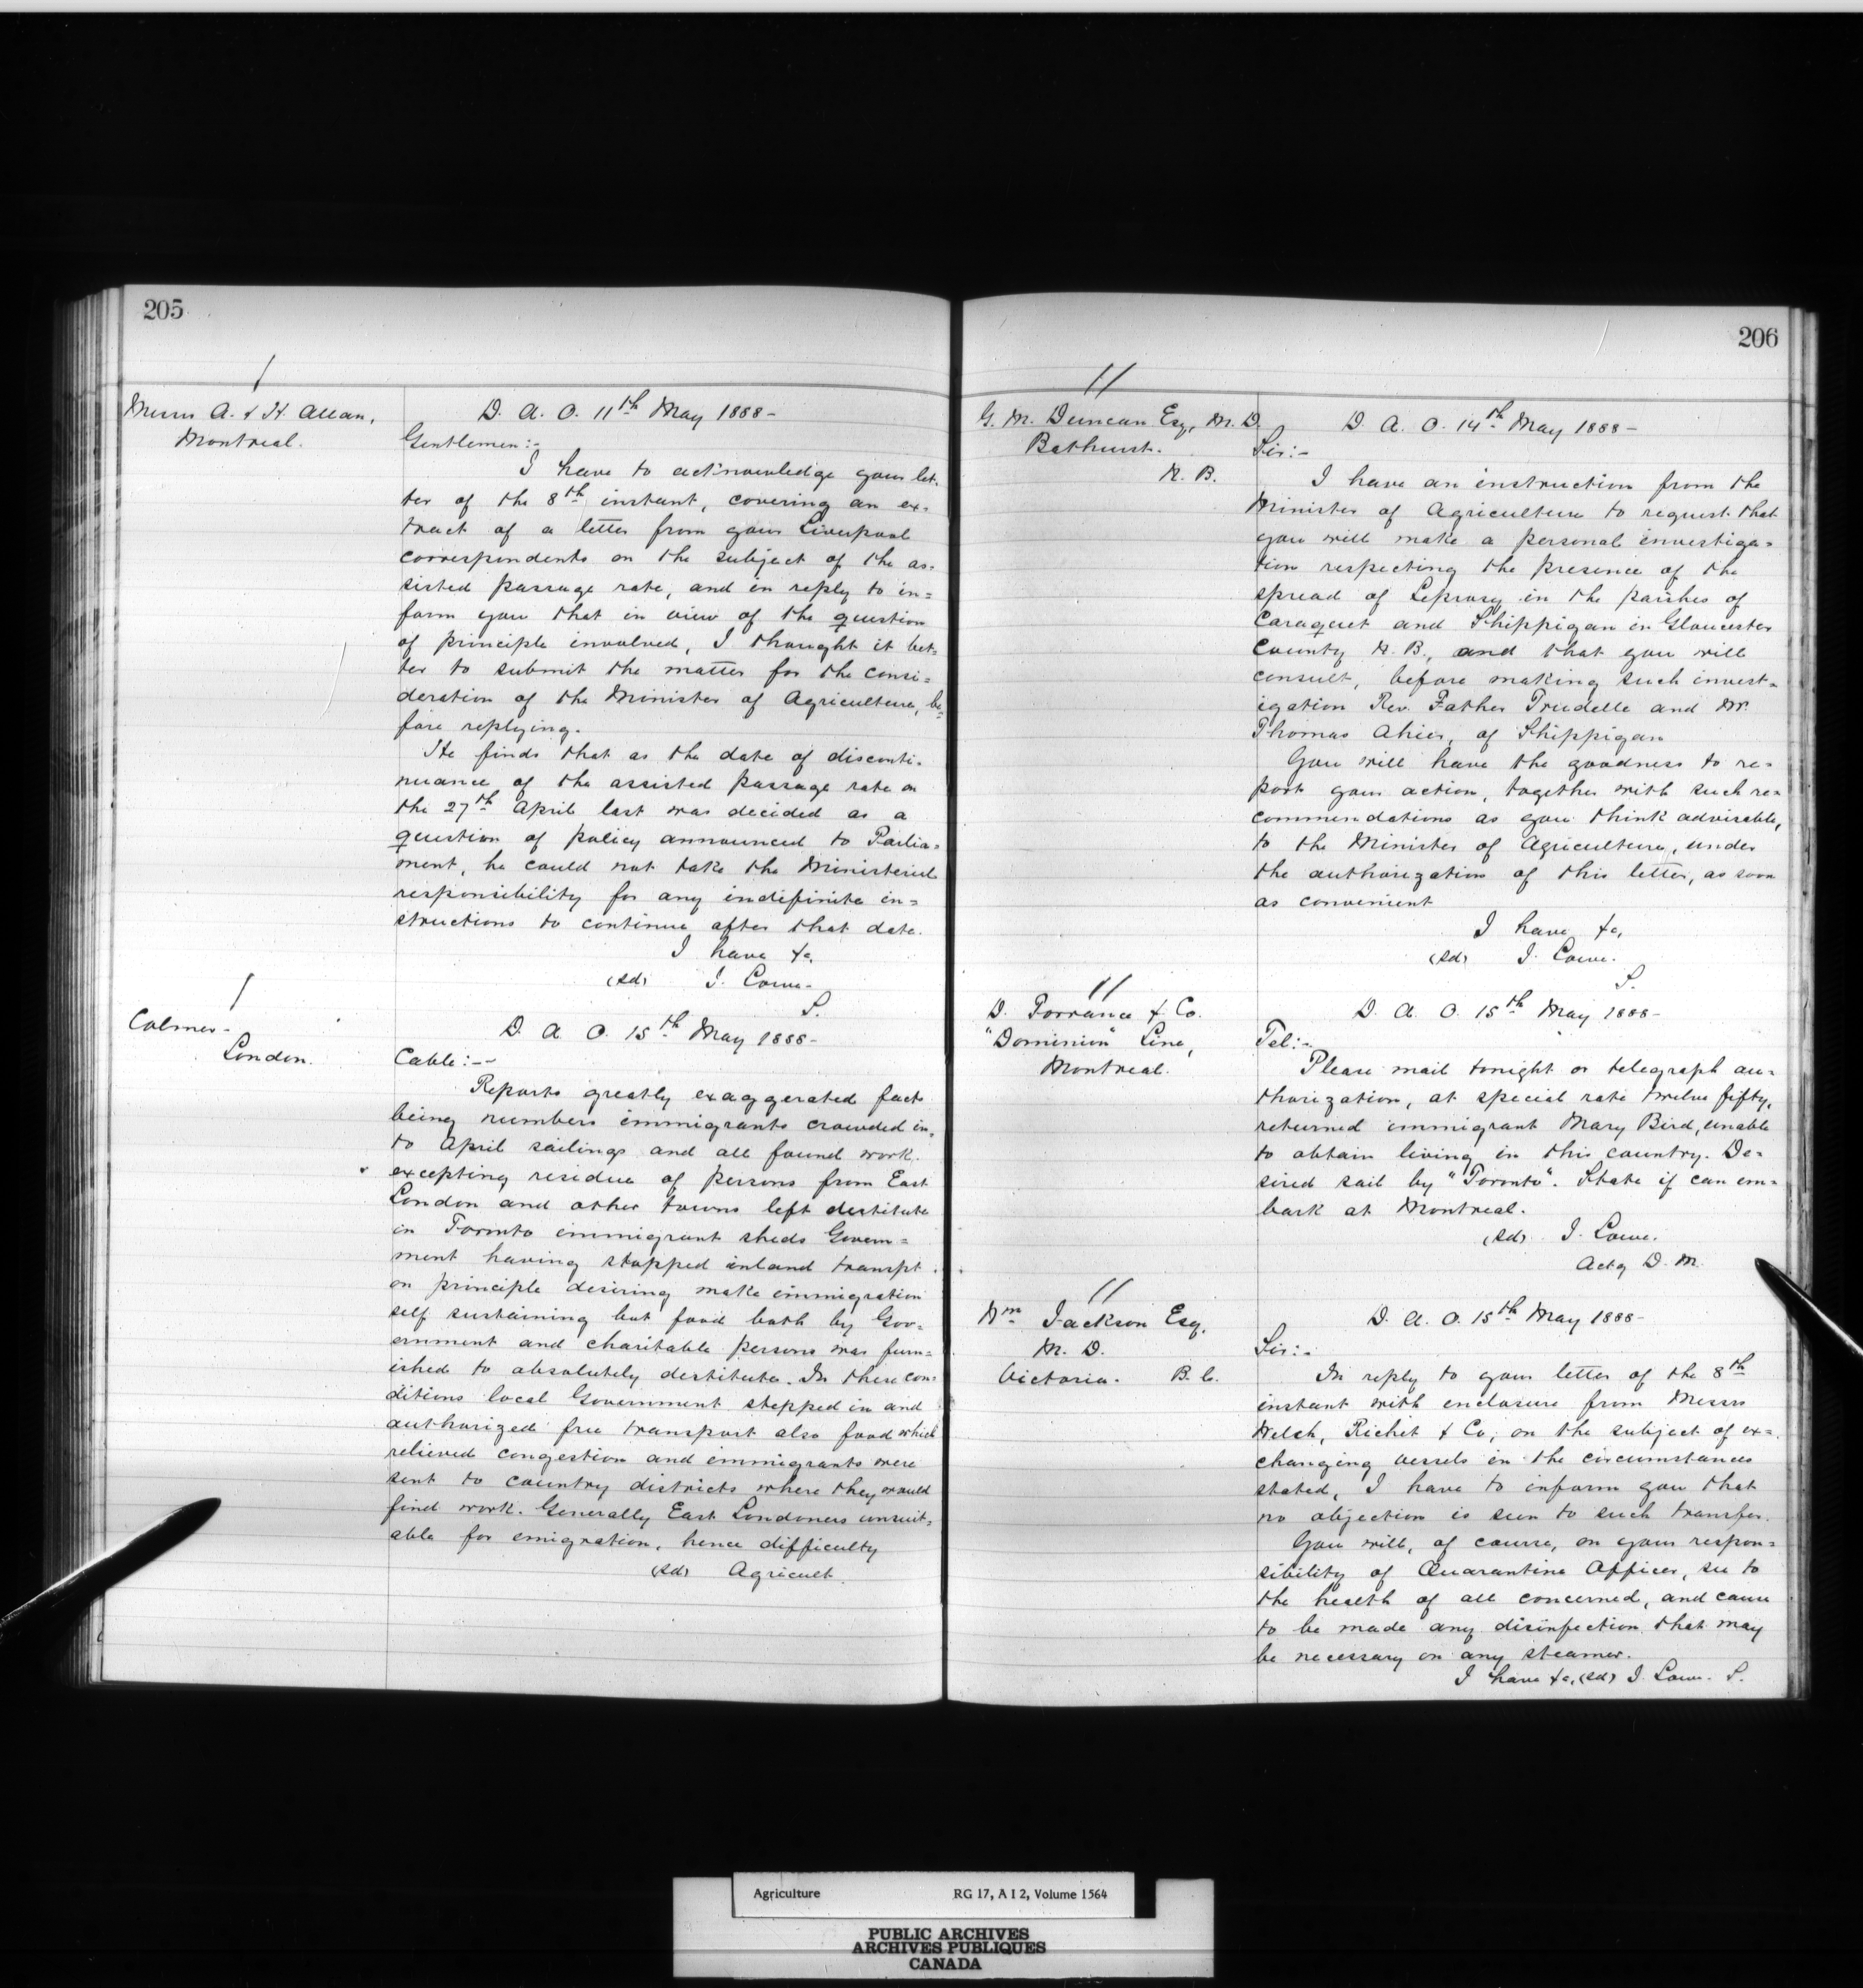 205
Messrs A. & H. Allan,
Montreal.
D. A. O. 11th May 1888-
Gentlemen:-
I have to acknowledge your let-
ter of the 8th instant, covering an ex-
tract of a letter from your Liverpool
correspondents on the subject of the as-
sisted passage rate, and in reply to in=
form you that in view of the question
of principle involved, I thought it bet-
ter to submit the matter for the consi=
deration of the Minister of Agriculture, be=
fore replying.
He finds that as the date of disconti-
nuance of the assisted passage rate on
the 27th April last was decided as a
question of policy announced to Parlia=
ment, he could not take the Ministerial
responsibility for any indefinite in=
structions to continue after that date.
I have &c,
(sd) J. Lowe.
S.
Colmer-
London.
D. A. O. 15th May 1888-
Cable:--
Reports greatly exaggerated facts
being numbers immigrants crowded in-
to April sailings and all found work.
excepting residue of persons from East
London and other towns left destitute
in Toronto immigrant sheds Govern=
ment having stopped inland transpt
on principle desiring make immigration
self sustaining but food both by Gov-
ernment and charitable persons was furn=
ished to absolutely destitute. In these con-
ditions local Government stepped in and
authorized free transport also food which
relieved congestion and immigrants were
sent to country districts where they would
find work. Generally East Londoners unsuit-
able for emigration, hence difficulty
(sd) Agricult.
206
11
G. M. Duncan Esq, M. D.
Bathurst.
N. B.
D. A. O. 14th May 1888-
Sir:-
I have an instruction from the
Minister of Agriculture to request that
you will make a personal investiga=
tion respecting the presence of the
spread of Leprosy in the parishes of
Caraquet and Shippigan in Gloucester
County N. B., and that you will
consult, before making such invest=
igation Rev. Father Trudelle and Mr.
Thomas Ahier, of Shippigan
You will have the goodness to re=
port your action, together with such re=
commendations as you think advisable,
to the Minister of Agriculture, under
the authorization of this letter, as soon
as convenient
I have &c,
(sd) J. Lowe.
S.
11
D. Torrance & Co.
"Dominion" Line,
Montreal.
D. A. O. 15th May 1888-
Tel:-
Please mail tonight or telegraph au=
thorization, at special rate twelve fifty,
returned immigrant Mary Bird, unable
to obtain living in this country. De=
sired sail by "Toronto". State if can em=
bark at Montreal.
(sd) J. Lowe.
Actg D. M.
11
Wm Jackson Esq.
M. D.
Victoria. B. C.
D. A. O. 15th May 1888-
Sir:-
In reply to your letter of the 8th
instant with enclosure from Messrs
Welsh, Richet & Co, on the subject of ex=
changing vessels in the circumstances
stated, I have to inform you that
no objection is seen to such transfer.
You will, of course, on your respon=
sibility of Quarantine Officer, see to
the health of all concerned, and cause
to be made any disinfection that may
be necessary on any steamer.
I have &c, (sd) J. Lowe. S.
Agriculture RG 17, A I 2, Volume 1564
PUBLIC ARCHIVES
ARCHIVES PUBLIQUES
CANADA